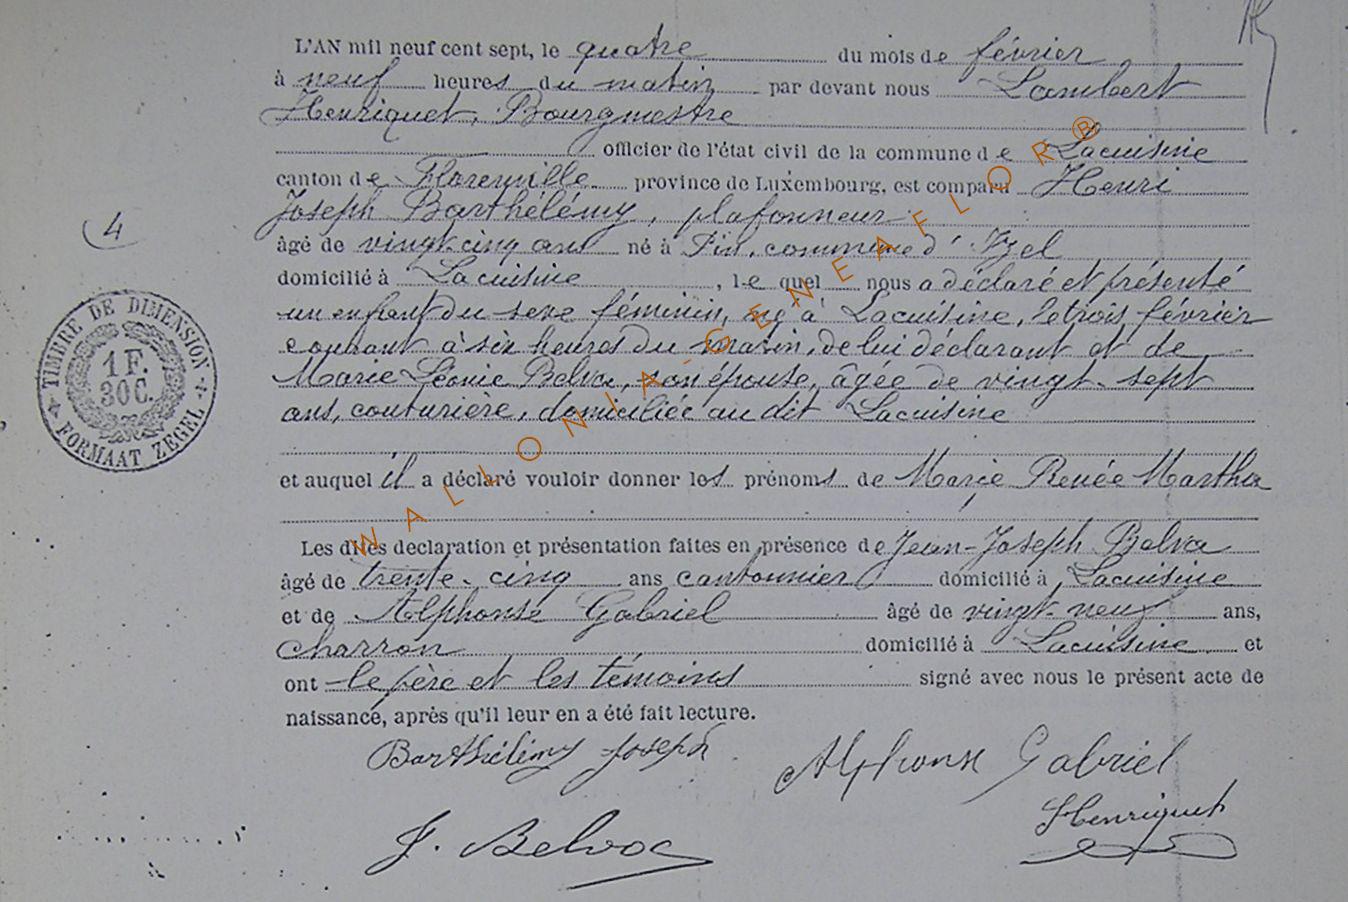 L'AN mil neuf cent sept, le quatre du mois de février
à neuf heures du matin par devant nous Lambert
Henriquet, Bourgmestre
officier de l'état civil de la commune de Lacuisine
canton de Florenville province de Luxembourg, est comparu Henri
Joseph Barthélémy, plafonneur
âgé de vingt-cinq ans né à Pin, commune d'Izel
domicilié à Lacuisine, le quel nous a déclaré et présenté
un enfant du sexe féminin, né à Lacuisine, le trois février
courant à six heures du matin, de lui déclarant et de
Marie Léonie Belva, son épouse, âgée de vingt-sept
ans, couturière, domiciliée au dit Lacuisine
et auquel il a déclaré vouloir donner les prénoms de Marie Renée Martha
Les dites declaration et présentation faites en présence de Jean-Joseph Belva
âgé de trente-cinq ans cantonnier domicilié à Lacuisine
et de Alphonse Gabriel âgé de vingt-neuf ans,
charron domicilié à Lacuisine et
ont le père et les témoins signé avec nous le présent acte de
naissance, après qu'il leur en a été fait lecture.
Barthélémy Joseph
Alphonse Gabriel
Henriquet
J. Belva
4
TIMBRE DE DIMENSION
1 F.
30 C.
FORMAAT ZEGEL
WALLONIA-GENEAFLOR®